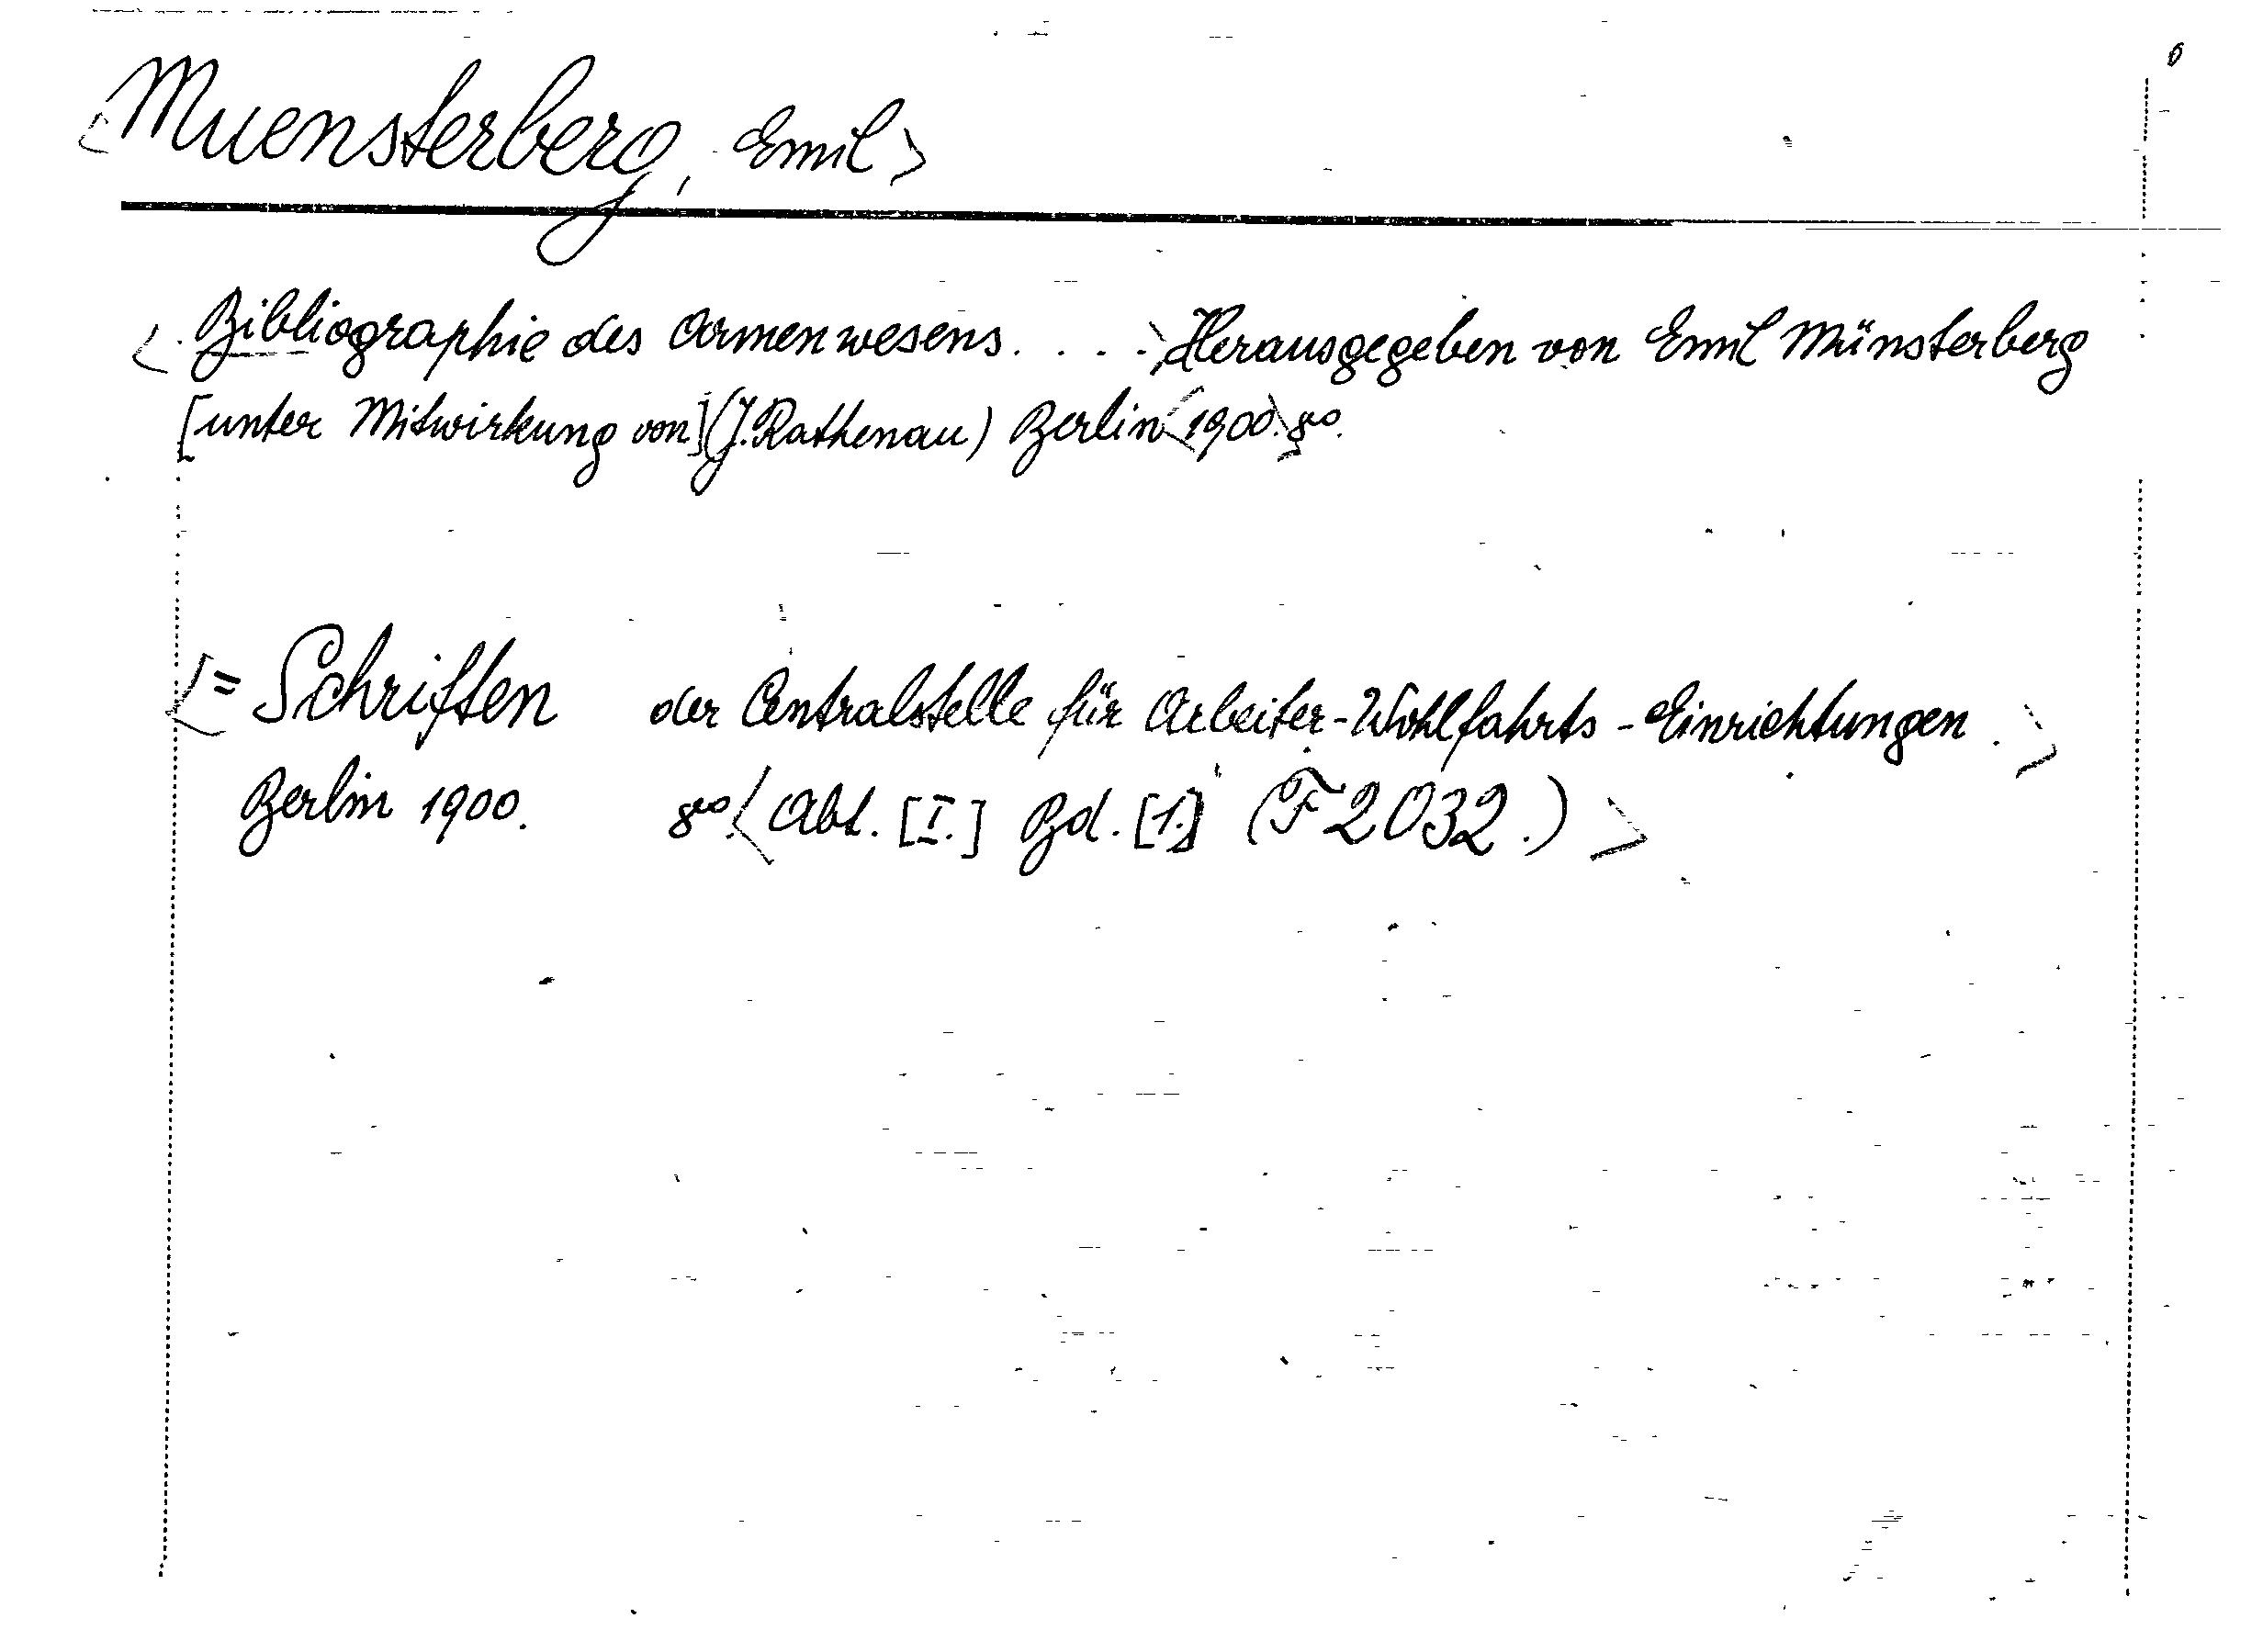 <Muensterberg, Emil>
<Bibliographie des Armenwesens. . . .> Herausgegeben von Emil Münsterberg
[unter Mitwirkung von] (J. Rathenau) Berlin <1900.> 8vo.
<= Schriften der Centralstelle für Arbeiter-Wohlfahrts-Einrichtungen.>
Berlin 1900. 8vo. <Abt. [I.] Bd. [1.] (F 2032.)>